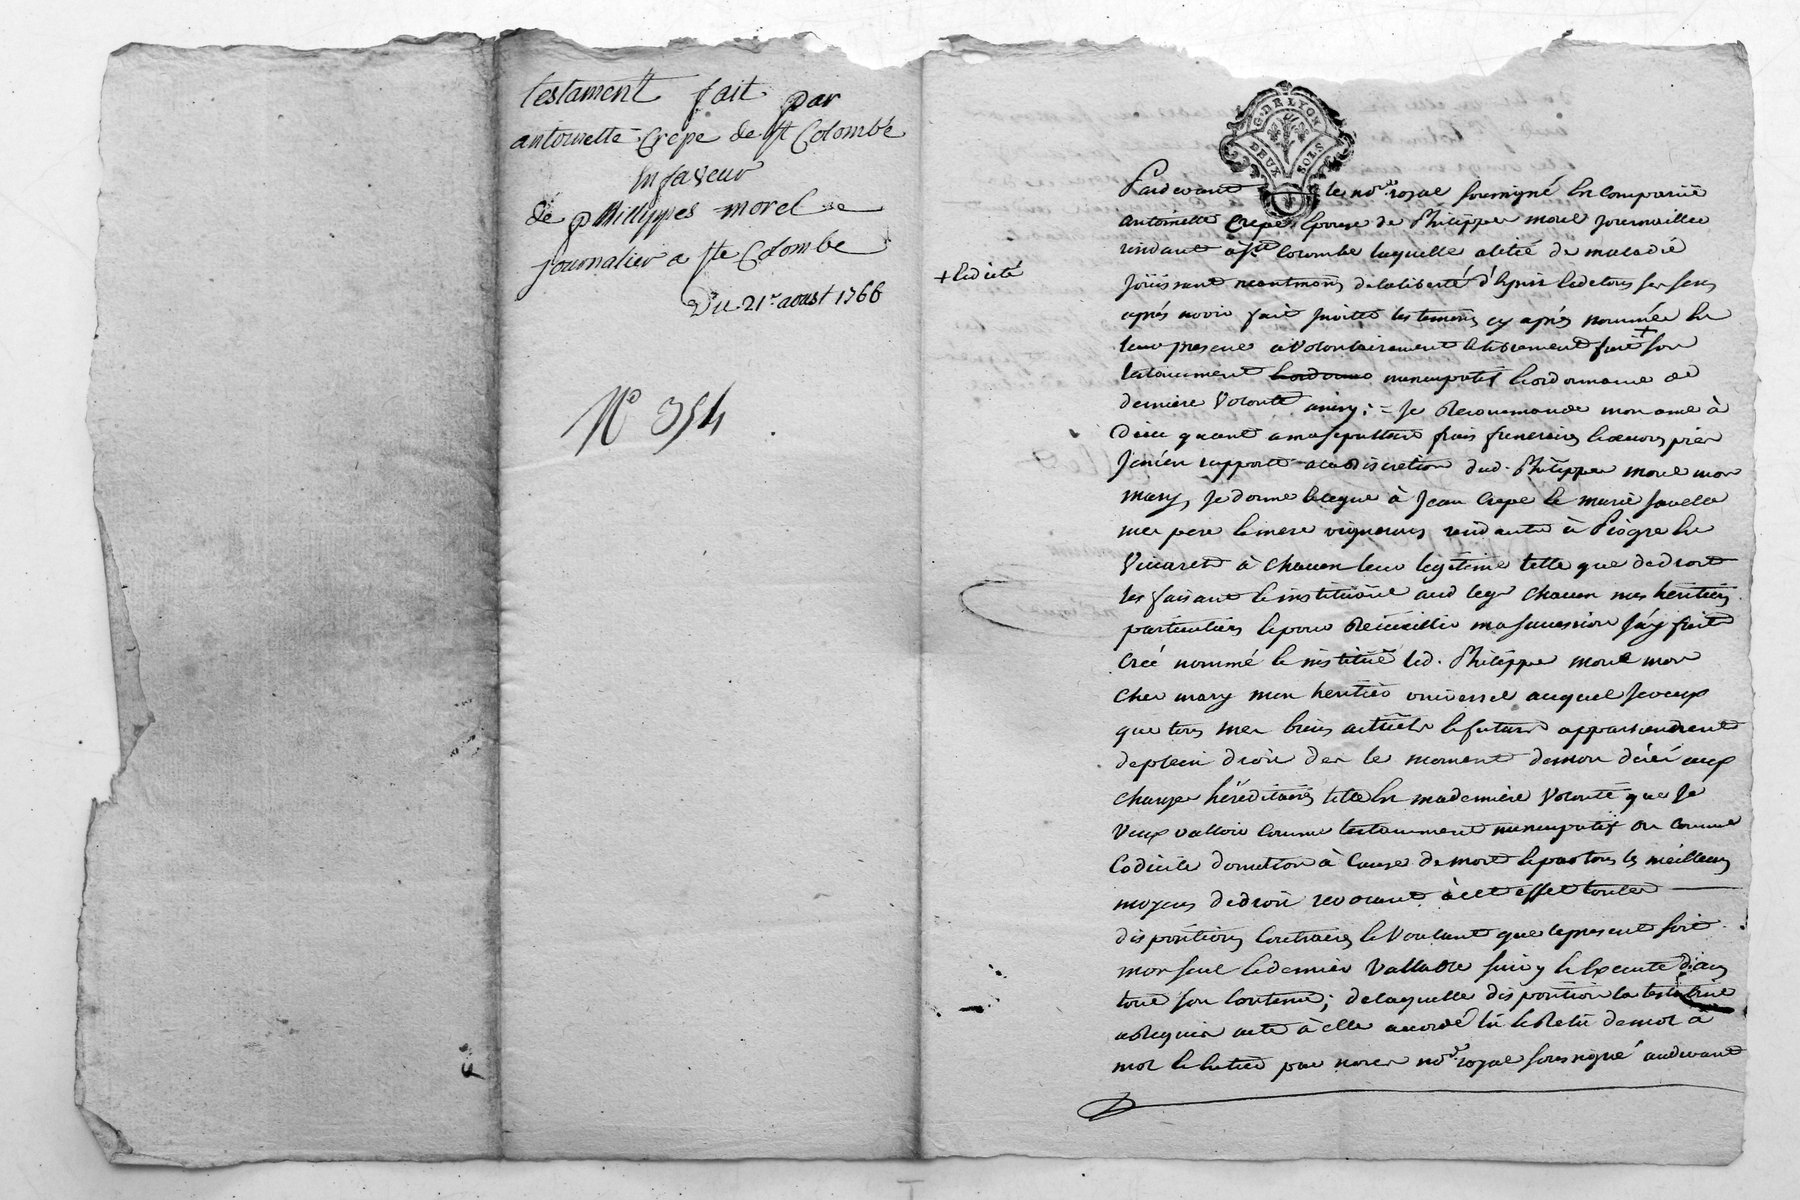 testament fait par
antoinette Crepe de st Colombe
En faveur
de phillippes morel
journalier a ste Colombe
Du 21e aoust 1766
No 354
G. DE LYON
DEUX SOLS
Pardevant le nore royal soussigné En Comparüe
antoinette Crepe Epouse de Philippe morel journaillier
residant a ste Colombe laquelle alitée de maladie
+ Et dicté
jouissant neantmoins de la liberté d'Esprit Et de tous ses sens
après avoir fait inviter les temoins cy après nommés En
leur presence a Volontairement et librement fait + son
testament nuncupatif Et ordonnance de
derniere Volonté ainsy: = Je Recommande mon ame à
Dieu quant a ma sepulture frais funeraires Et œuvres pies
J'en en rapporte a la discretion dud. Philippe morel mon
mary, Je donne Et legue à Jean Crepe Et marie
mes pere Et mere vignerons residants à En
Vivarets à chacun leur legitime telle que de droit
les faisant Et instituant aud legs chacun mes heritiers
particuliers Et pour Recueillir ma succession J'ay fait
créé nommé Et institué led. Philippe morel mon
cher mary mon heritier universel auquel Je veux
que tous mes biens actuels Et futurs appartiennent
de plein droit des le moment de mon décès aux
charges héréditaires telle En ma derniere Volonté que Je
veux valloir comme testament nuncupatif ou comme
Codicile donnation à Cause de mort Et par tous les meilleurs
moyens de droit revocant à cet effet toutes
dispositions Contraires Et Voulant que le present soit
mon seul Et dernier Vallable suivy Et Executé dans
tout son Contenu; de laquelle disposition la testatrice
a Requis acte à elle accordé lü Et Relü de mot à
mot Et par nore royal soussigné audevant